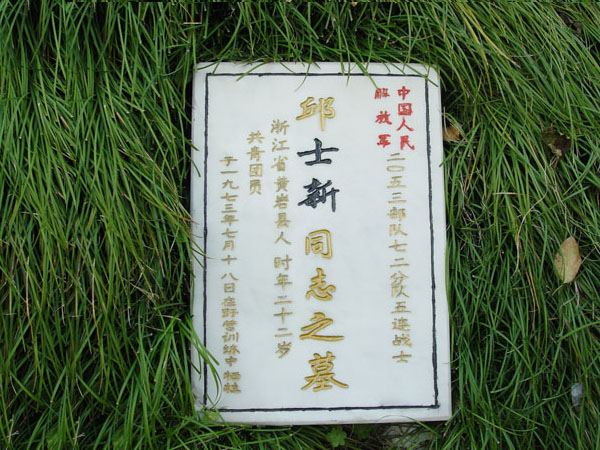 中国人民
解放军
二〇五三部队七二分队五连战士
邱士新同志之墓
浙江省黄岩县人 时年二十二岁
共青团员
于一九七三年七月十八日在野营训练中牺牲